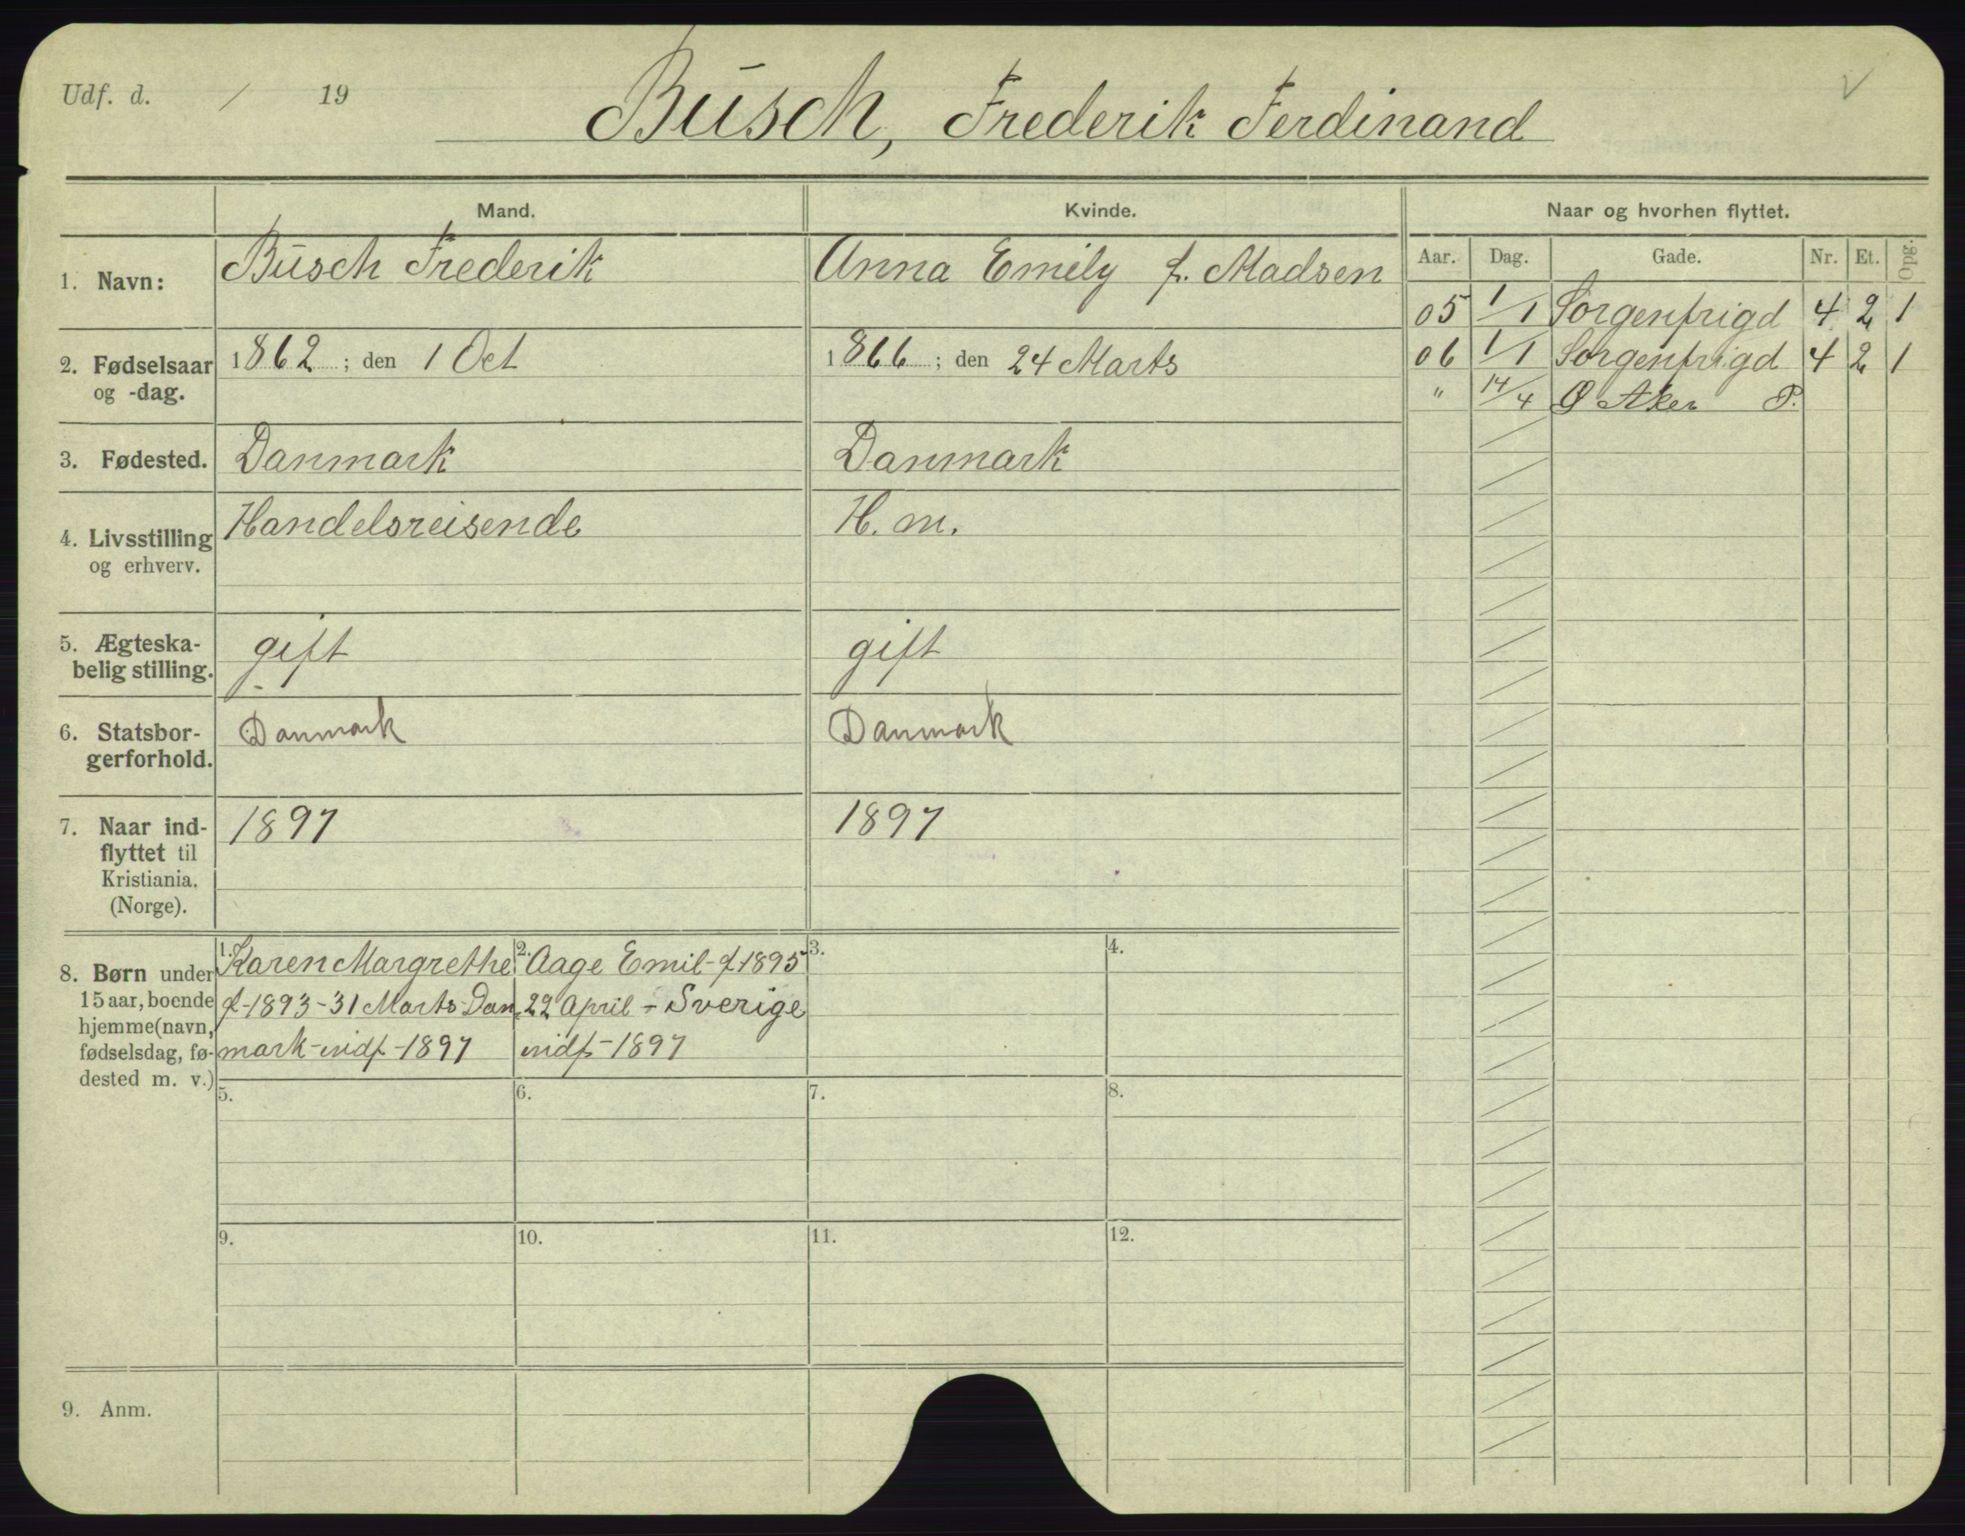 Udf. d. / 19
Busch, Frederik Ferdinand
Mand. Kvinde. Naar og hvorhen flyttet.
Aar. Dag. Gade. Nr. Et. Opg.
1. Navn: Busch Frederik Anna Emily f. Madsen
05 1/1 Sorgenfrigd 4 2 1
2. Fødselsaar og -dag. 1862; den 1 Oct 1866; den 24 Marts
06 1/1 Sorgenfrigd 4 2 1
" 14/4 Ø Aker P.
3. Fødested. Danmark Danmark
4. Livsstilling og erhverv. Handelsreisende H. m.
5. Ægteska-
belig stilling. gift gift
6. Statsbor-
gerforhold. Danmark Danmark
7. Naar ind-
flyttet til
Kristiania.
(Norge). 1897 1897
8. Børn under
15 aar, boende
hjemme (navn,
fødselsdag, fø-
dested m. v.)
1. Karen Margrethe
f-1893-31 Marts-Dan
mark-indf-1897
2. Aage Emil-f-1895
22 April - Sverige
indf-1897
3. 4.
5. 6. 7. 8.
9. 10. 11. 12.
9. Anm.